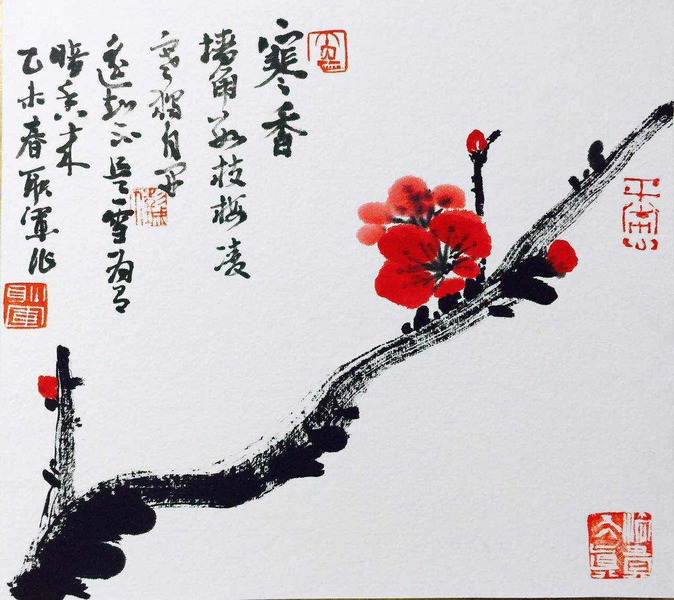 寒香
墙角数枝梅凌
寒独自开
遥知不是雪为有
暗香来
乙未春联军作
平常心